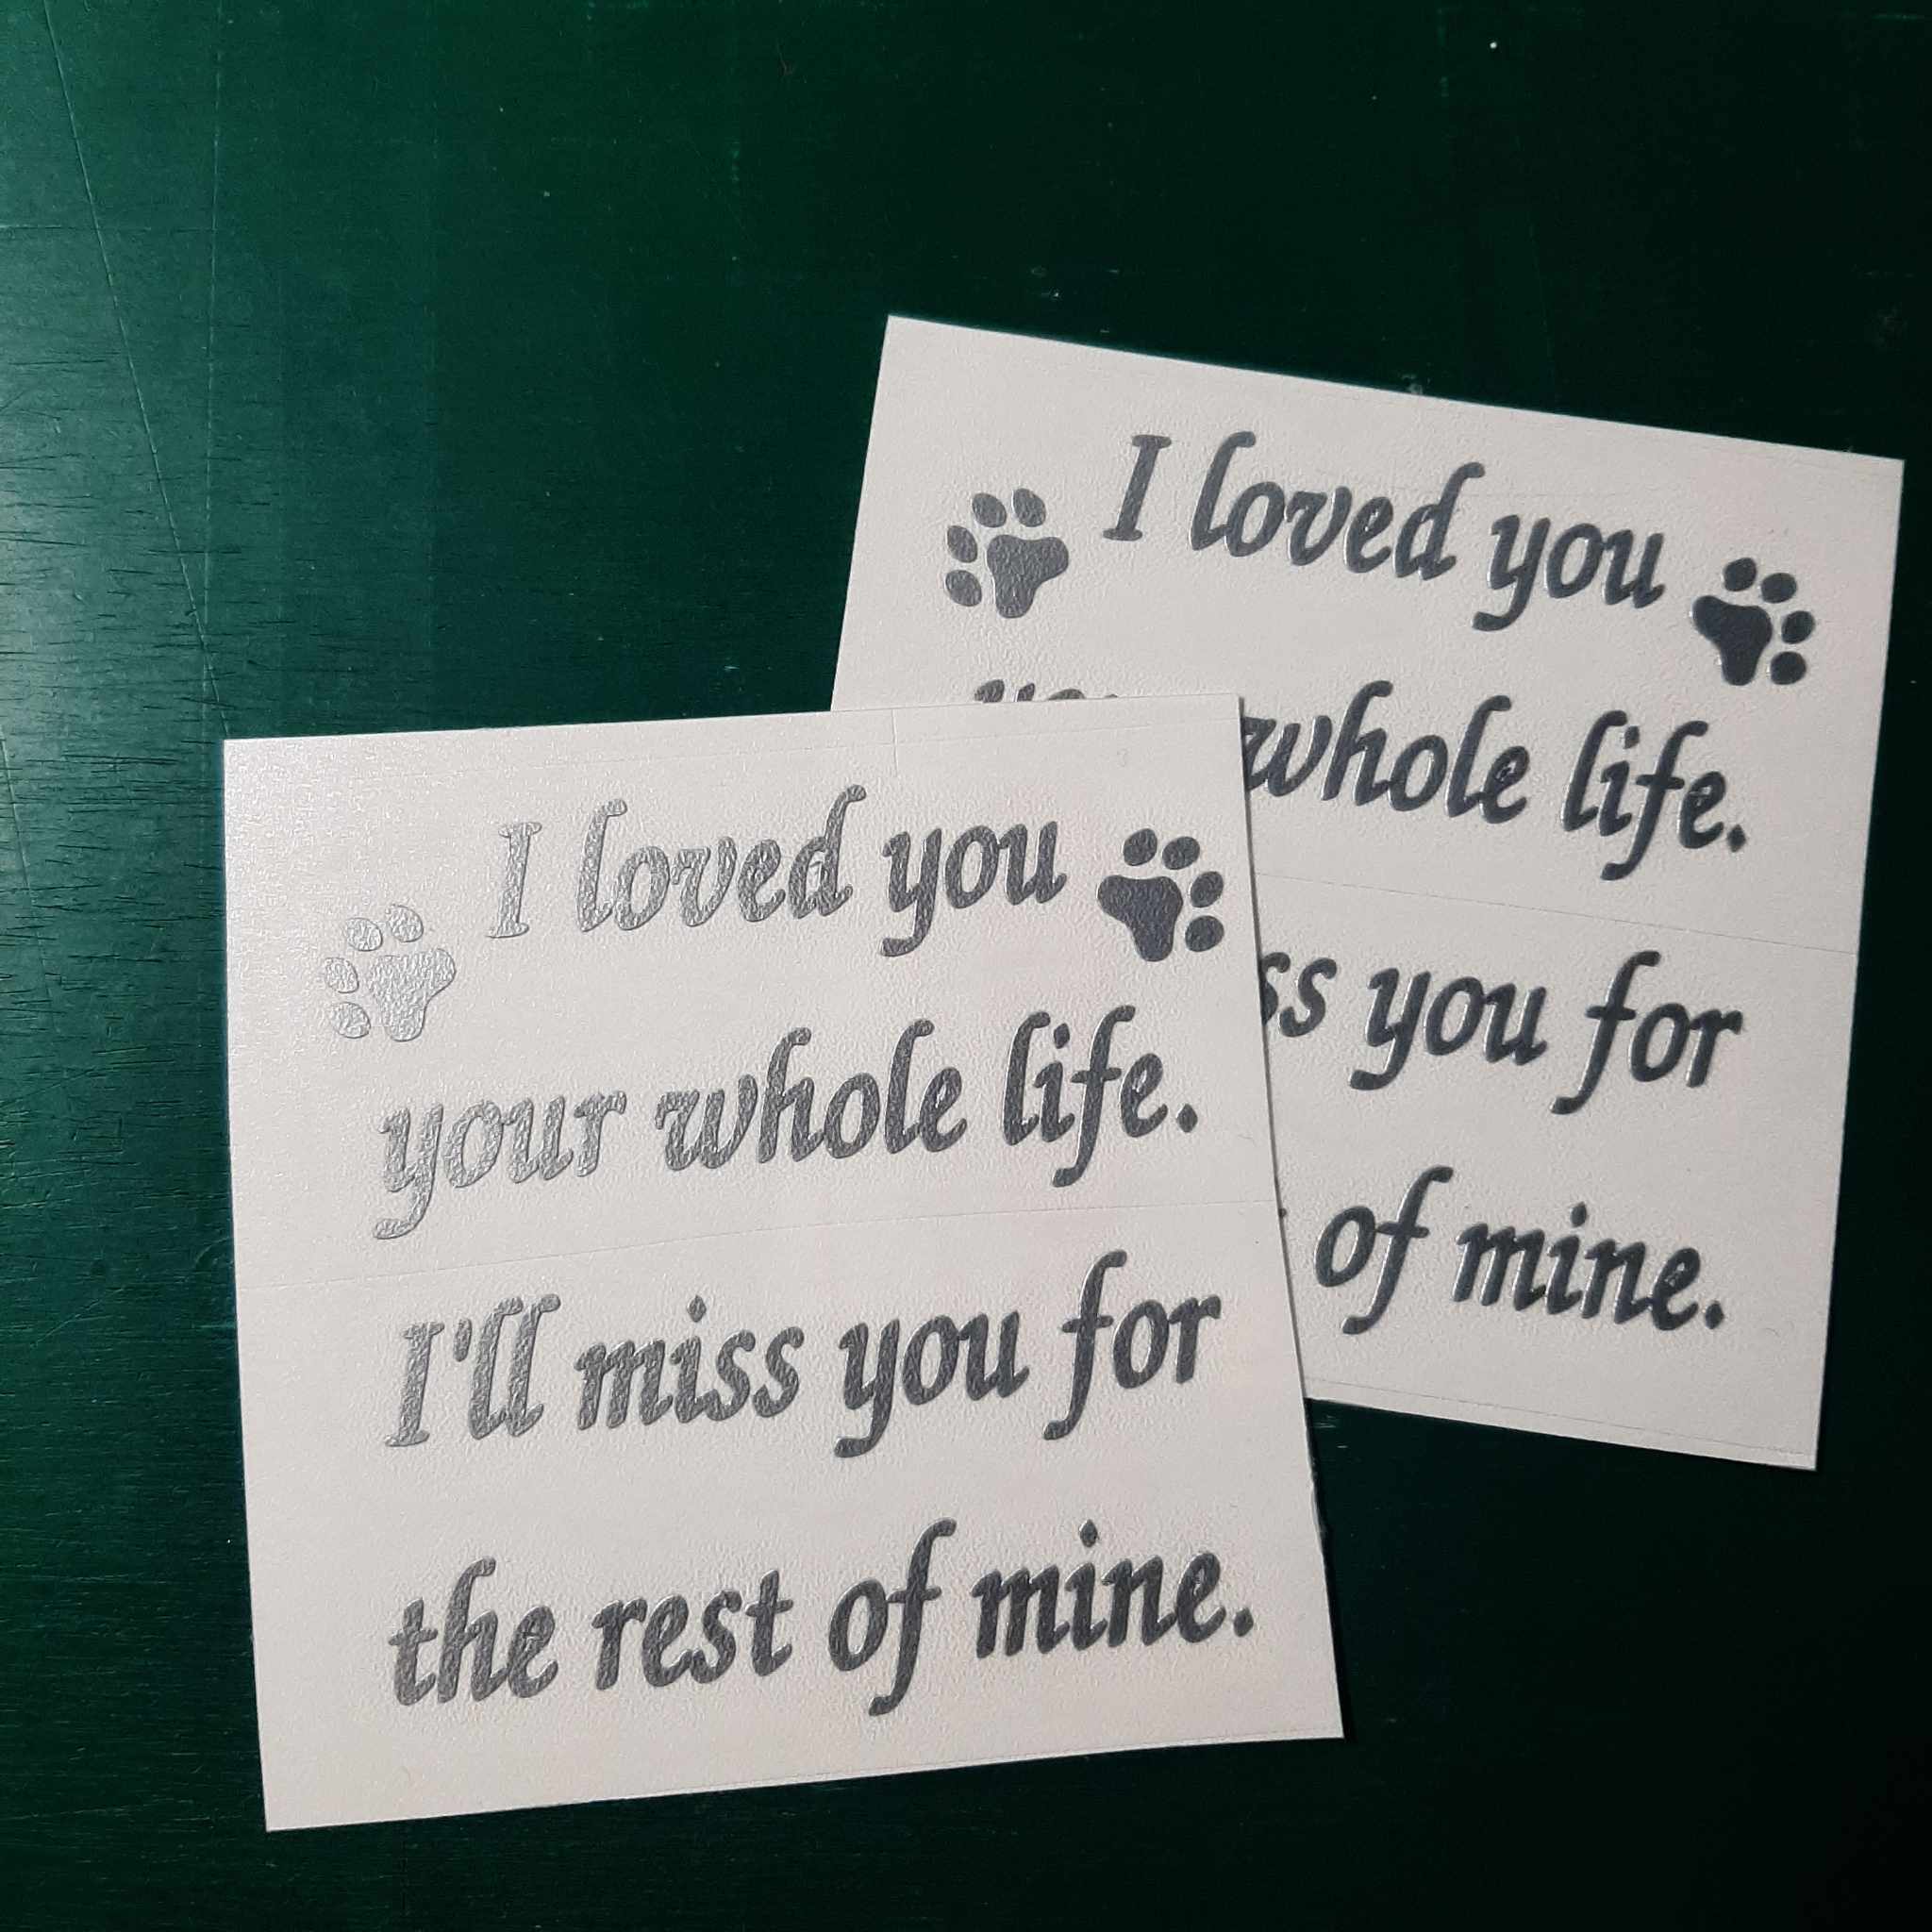 I loved you
your whole life.
I'll miss you for
the rest of mine.
I loved you
whole life.
you for
of mine.